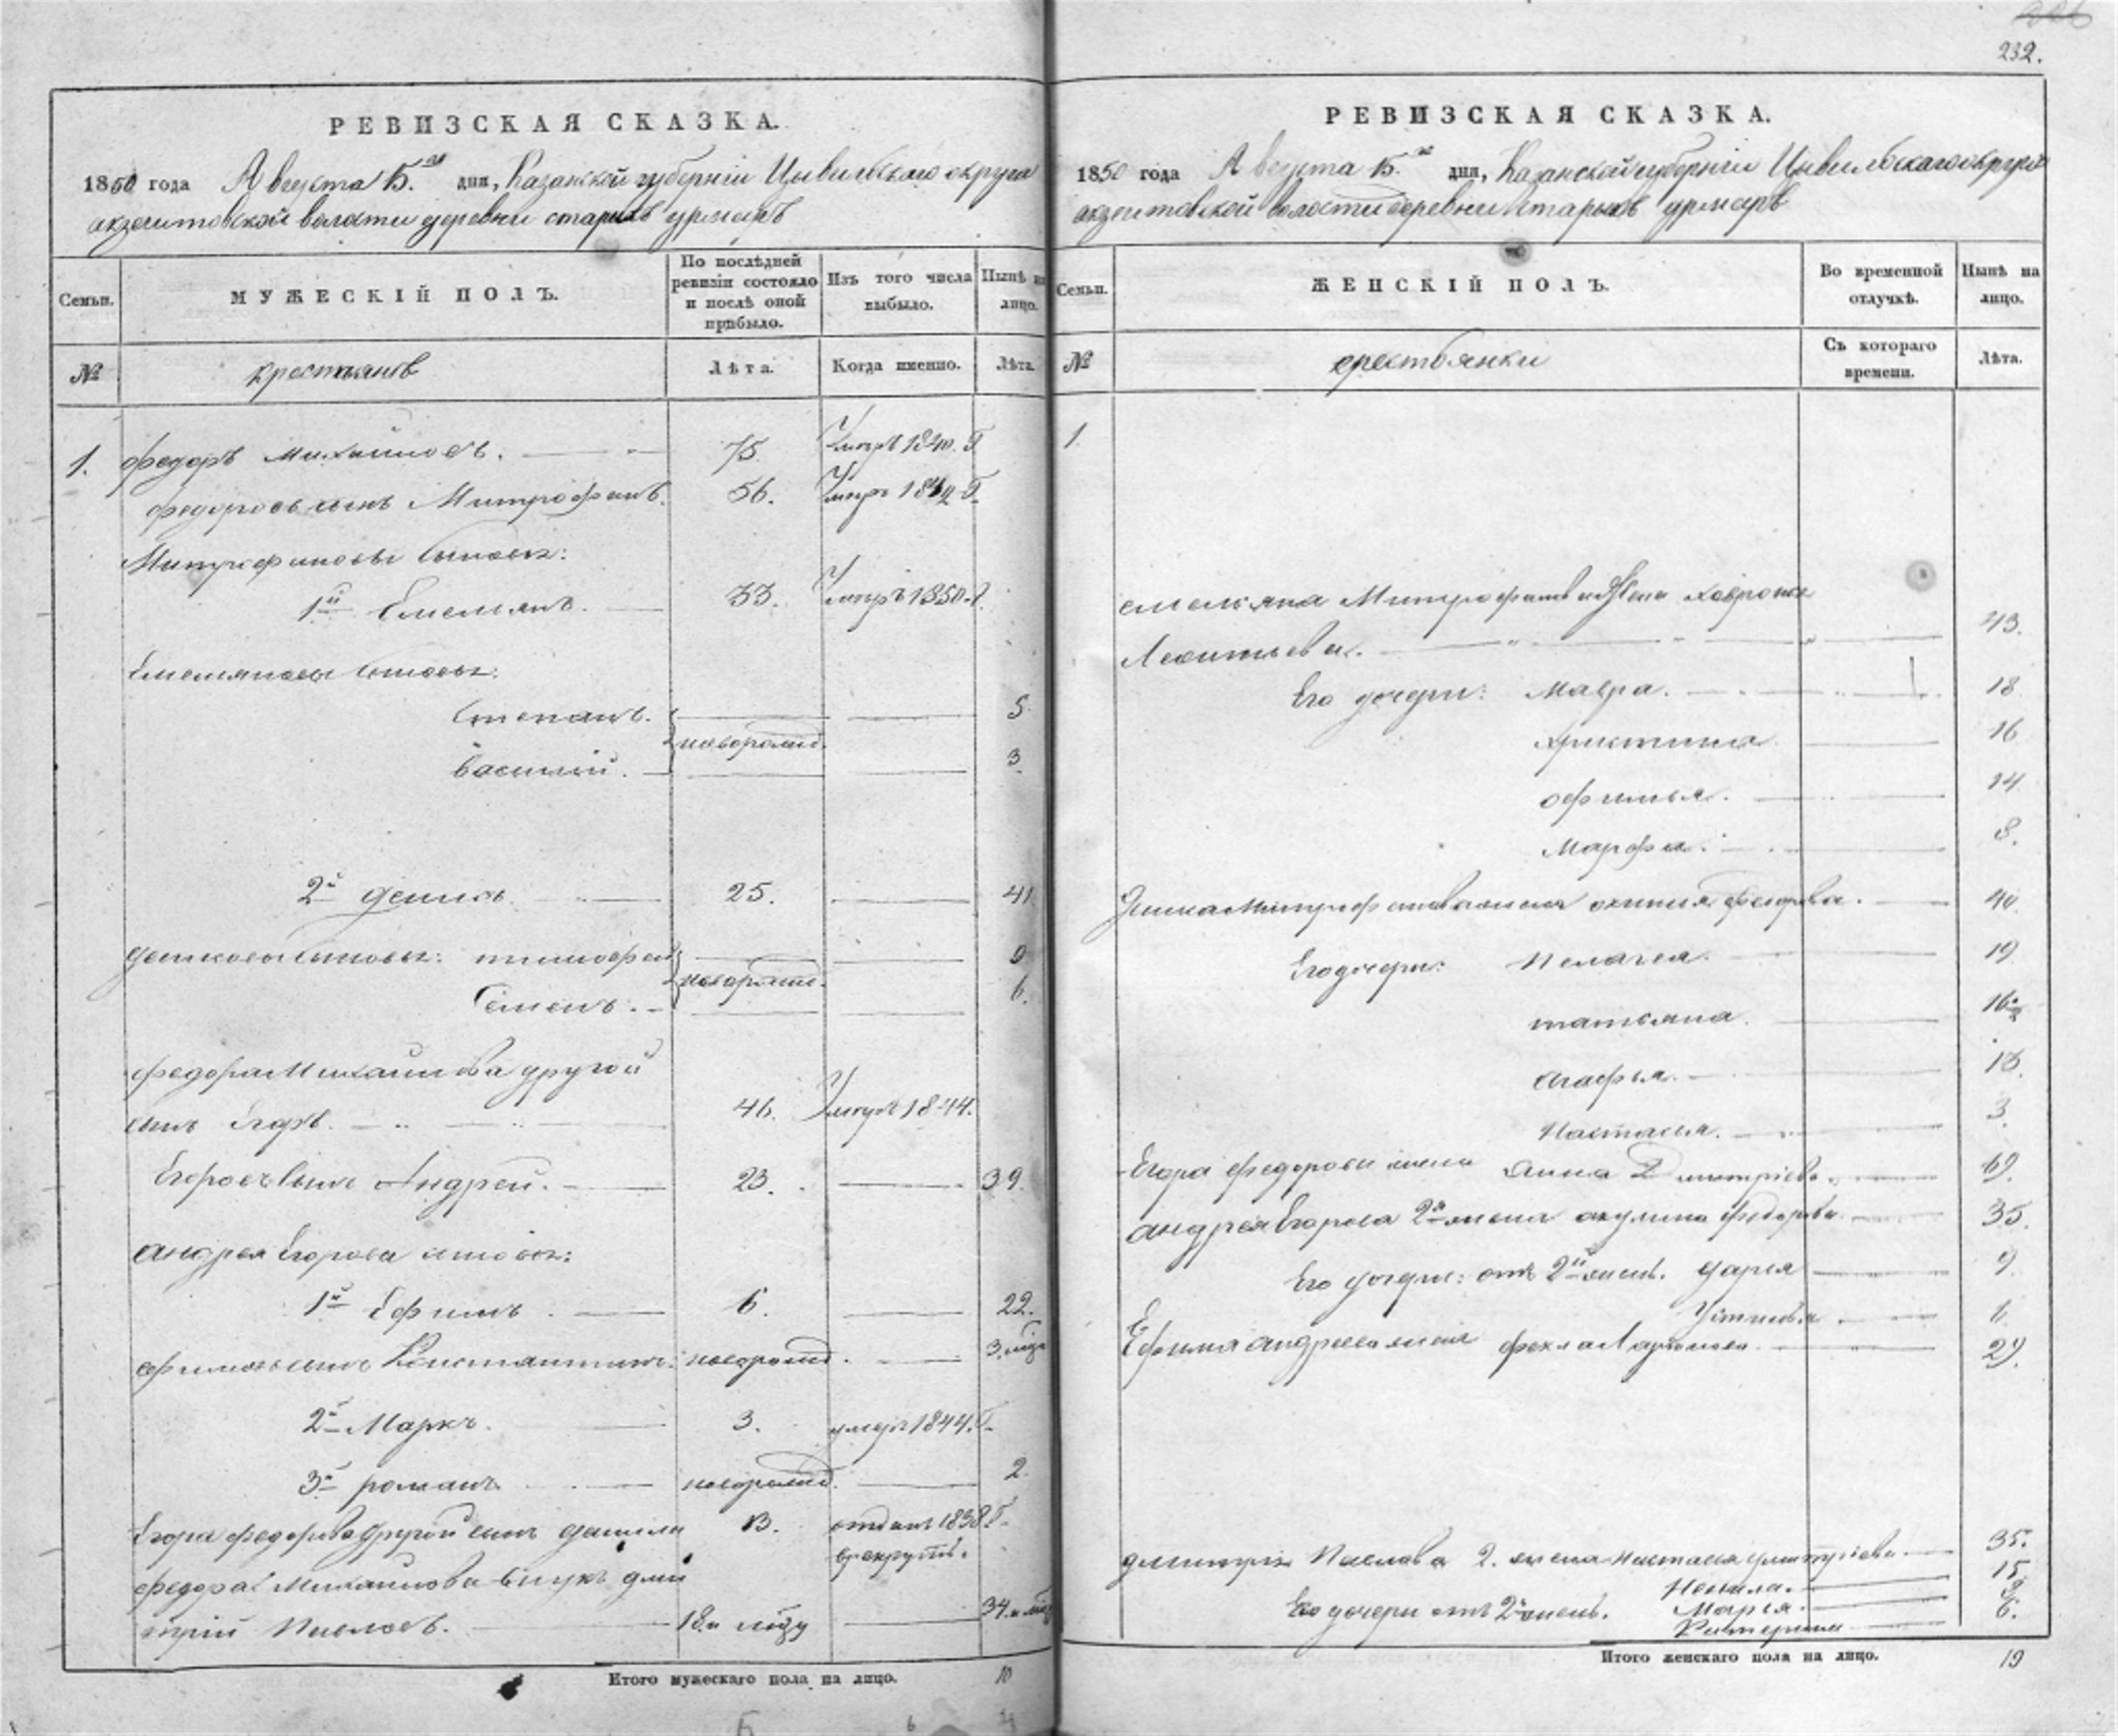 232.
РЕВИЗСКАЯ СКАЗКА.
1850 года Августа 15.го дня, Казанской губерніи Цивильскаго округа
акзегитовской волости деревни старыхъ урмаръ
Семьи.
МУЖЕСКІЙ ПОЛЪ.
По послѣдней ревизіи состояло и послѣ оной прибыло.
Изъ того числа выбыло.
Нынѣ на лицо.
№
крестьянъ
Лѣта.
Когда именно.
Лѣта.
1. федоръ михайловъ. 75. Умеръ 1840. Г
федоровъ сынъ Митрофанъ. 56. Умеръ Г.
Митрофановы сыновья:
1й Емельянъ. 33. Умеръ 1850. г.
Емельяновы сыновья:
Степанъ. 5
новорожд.
Василій. 3.
2й демидъ. 25. 41
сыновья: тимофей 9
новорожд.
Семенъ. 6.
федора Михайлова другой
сынъ Егоръ. 46. Умеръ 1844.
Егоровъ сынъ Андрей. 23. 39.
андрея Егорова сыновья:
1й Ефимъ. 6. 22.
ефимовъ сынъ Константинъ. новорожд. 3.
2й Маркъ. 3. умеръ 1844. Г.
3й романъ новорожд. 2.
Егора федорова другой сынъ данила 13. отданъ 1838. Г.
в рекруты.
федора Михайлова внукъ дми
трій Павловъ. 18. 34.
Итого мужескаго пола на лицо. 10
РЕВИЗСКАЯ СКАЗКА.
1850 года Августа 15.го дня, Казанской губерніи Цивильскаго округа
акзегитовской волости деревни старыхъ урмаръ
Семьи.
ЖЕНСКІЙ ПОЛЪ.
Во временной отлучкѣ.
Нынѣ на лицо.
№
крестьянки
Съ котораго времени.
Лѣта.
1.
емельяна Митрофанова жена Хавронья
Леонтьева. 43.
Его дочери: Мавра. 18
христина 16
офимья. 14
Марфа. 8.
Митрофанова жена федорова. 40.
Его дочери: Пелагея. 19
татьяна. 16
агафья. 13.
Настасья. 3.
Егора федорова жена Анна Дмитріева. 69.
андрея Егорова 2я жена акулина федорова. 35.
Его дочери: отъ 2й жены. дарья 9.
Устинья
Ефима андреева жена фекла 29.
дмитрія Павлова 2. жена настасья дмитріева. 35.
15
Его дочери отъ 2й жены. Марья.
Катерина 6.
Итого женскаго пола на лицо. 19